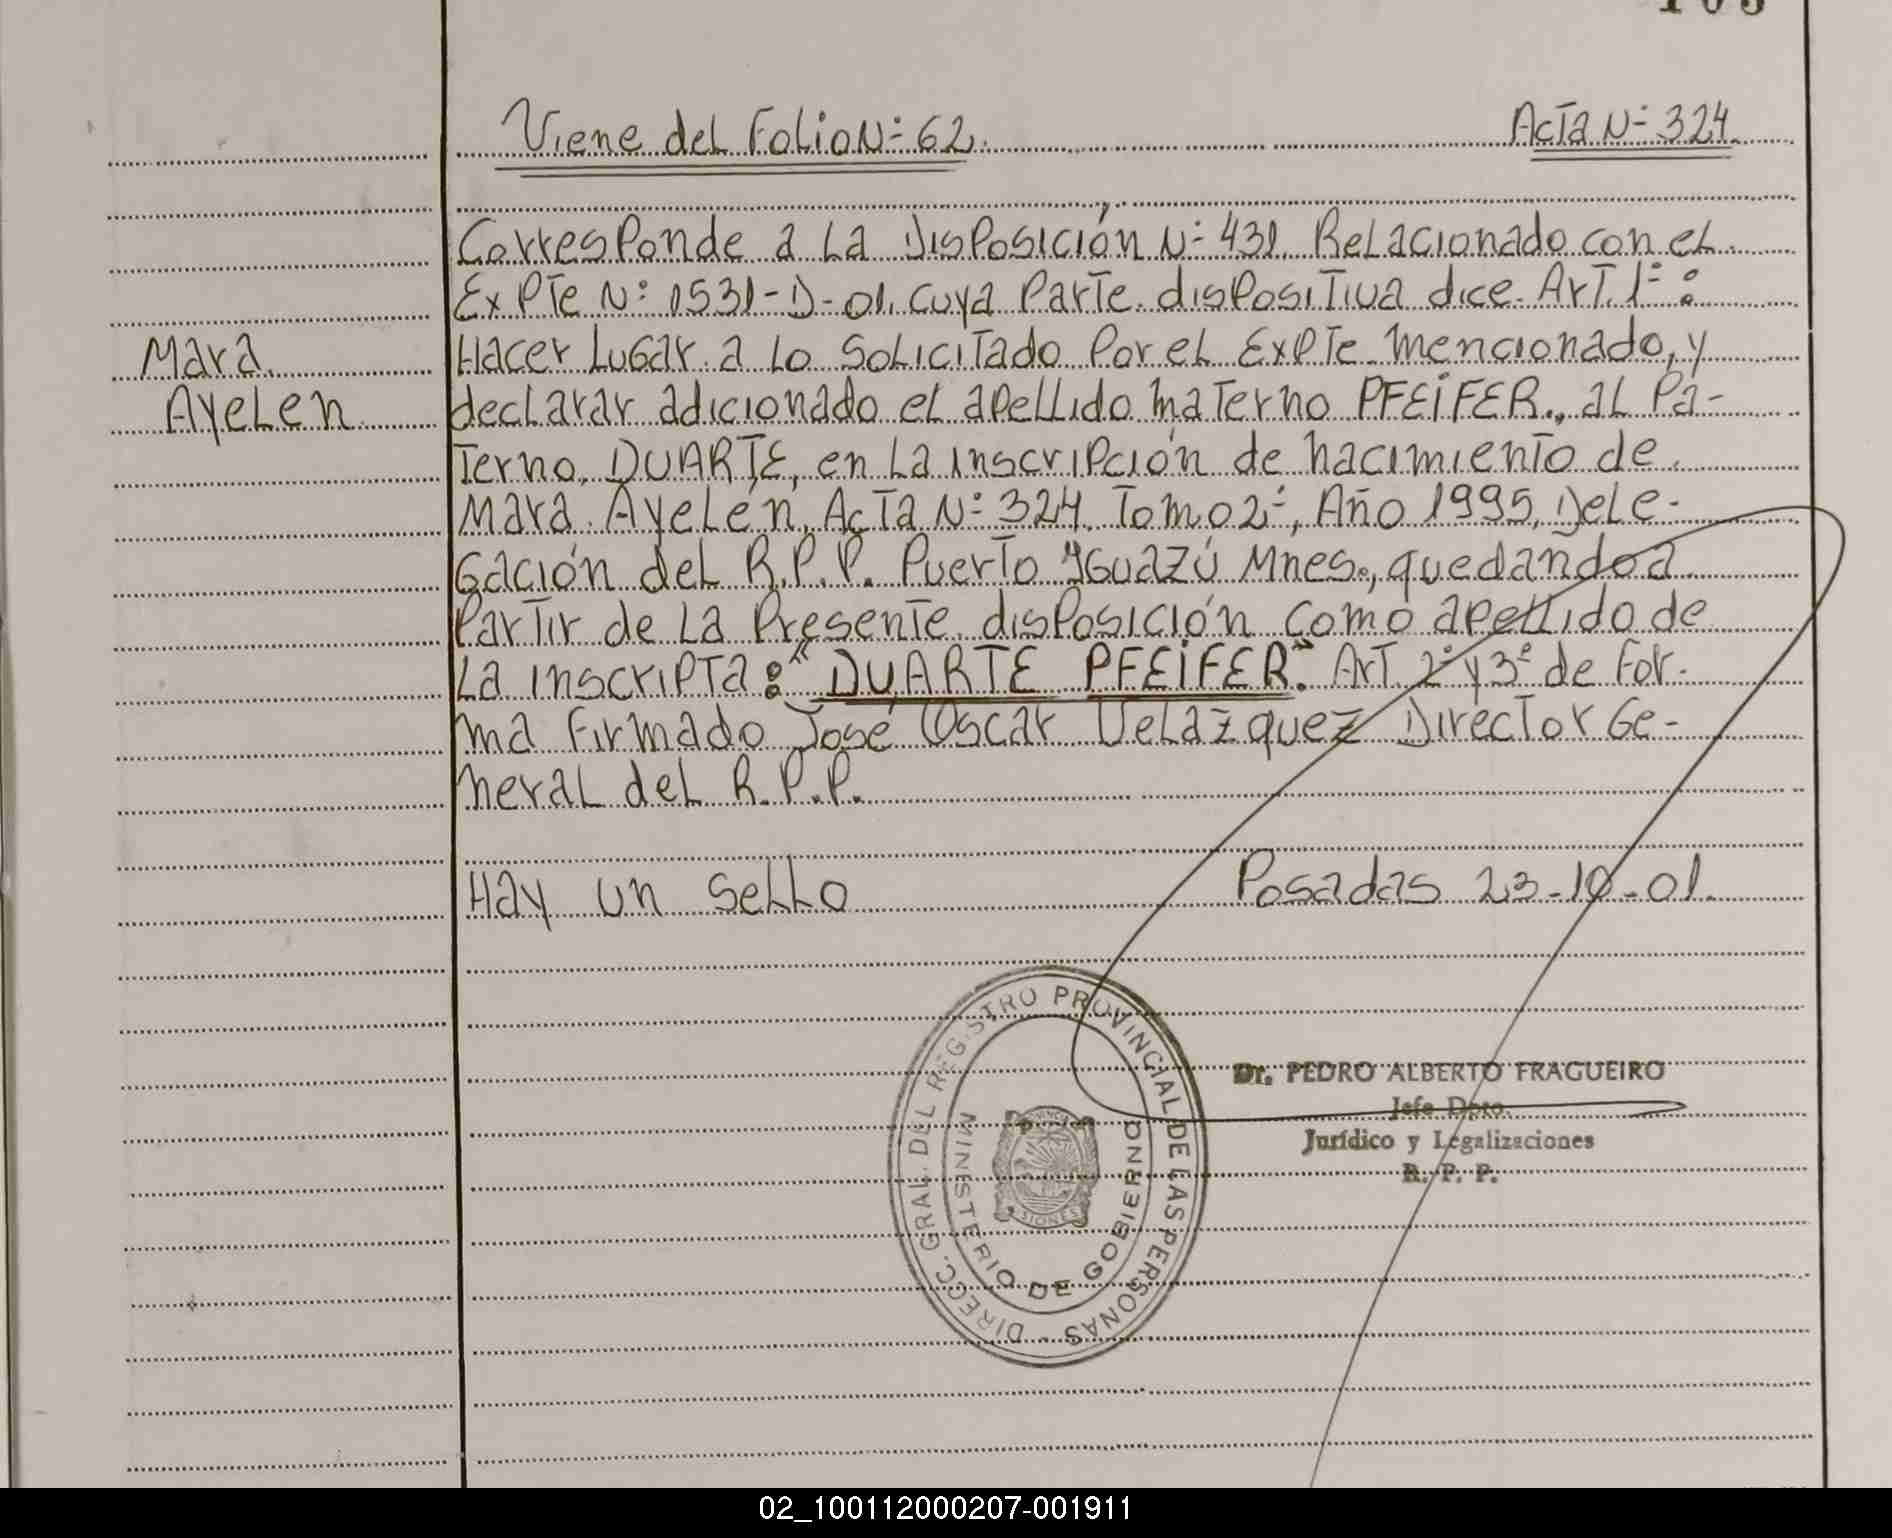 103
Viene del Folio Nº 62. Acta Nº 324.
Corresponde a la disposición Nº 431. Relacionado con el
Expte Nº 1531-D-01. cuya parte dispositiva dice Art. 1º:
Mara
Hacer lugar a lo solicitado por el Expte mencionado, y
Ayelen
declarar adicionado el apellido materno PFEiFER., al pa-
terno DUARTE, en la inscripción de nacimiento de
Mara Ayelén, Acta Nº 324. Tomo 2º, Año 1995, Dele-
gación del R.P.P. Puerto Yguazú Mnes., quedando a
partir de la presente disposición como apellido de
la inscripta: "DUARTE PFEiFER". Art. 2º y 3º de for-
ma firmado José Oscar Velazquez Director Ge-
neral del R.P.P.
Hay un sello Posadas 23-10-01.
DIRECC. GRAL. DEL REGISTRO PROVINCIAL DE LAS PERSONAS -
MINISTERIO DE GOBIERNO
Dr. PEDRO ALBERTO FRAGUEIRO
Jefe Dpto.
Jurídico y Legalizaciones
R. P. P.
02_100112000207-001911